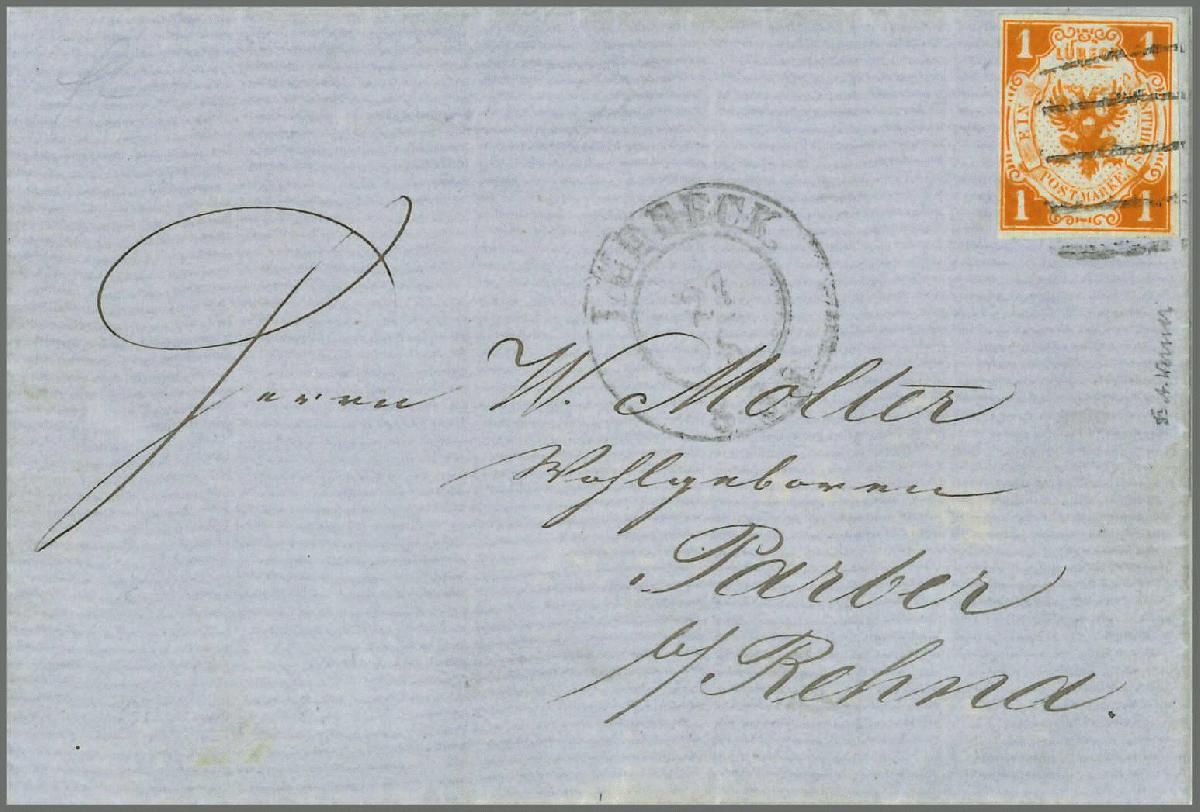 1 LÜBECK 1
EIN SCHILLING
POSTMARKE
1 1
LUEBECK
27
Herrn W. Molter
Wohlgeboren
Parber
b/ Rehna.